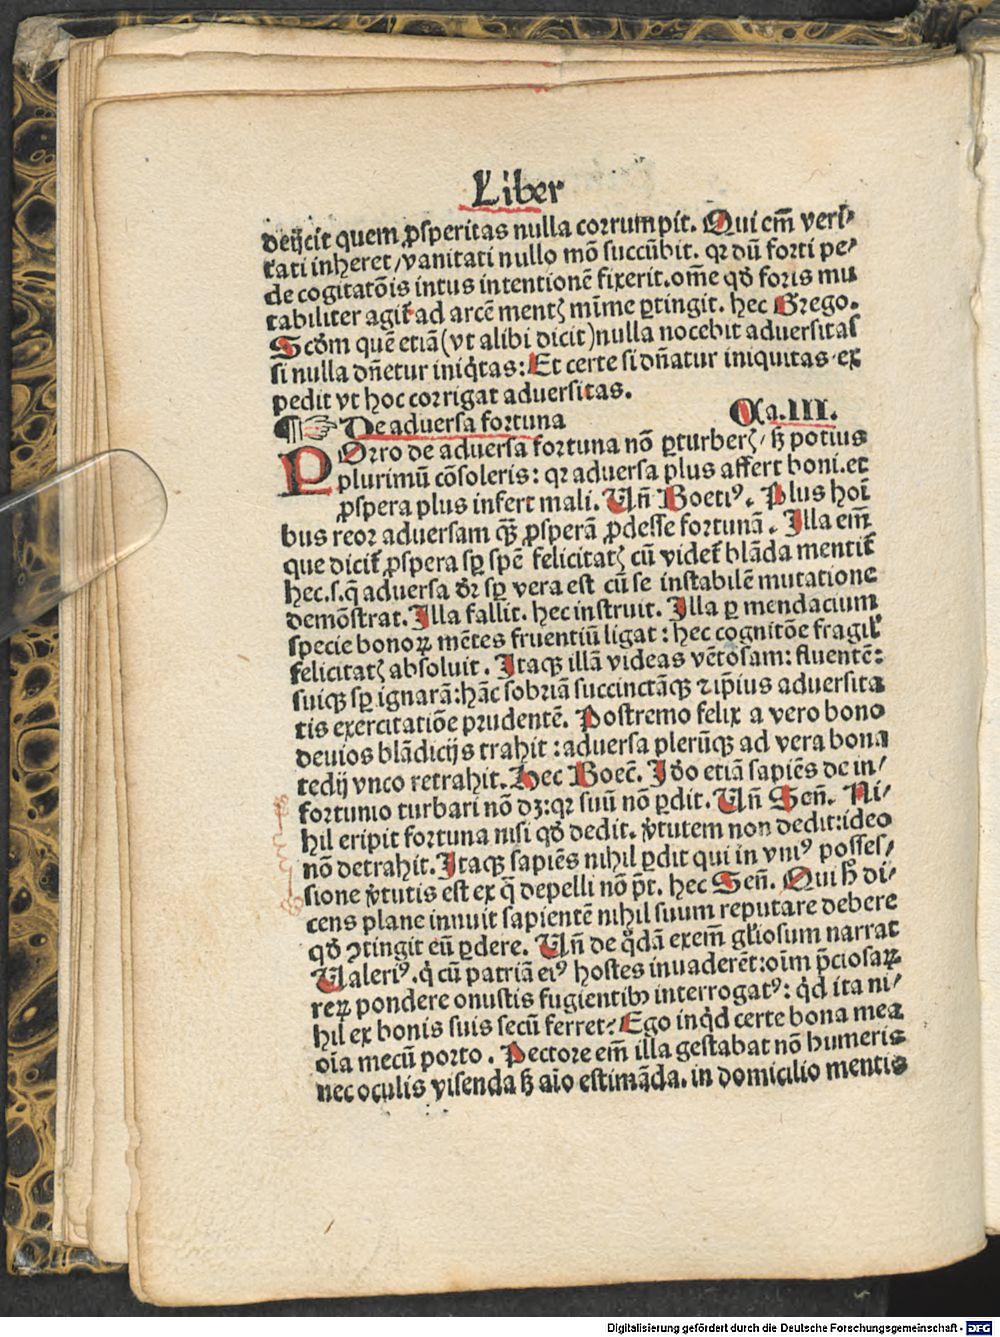 Liber
deijcit quem ꝓsperitas nulla corrumpit. Qui em̃ veri⸗
tati inheret/vanitati nullo mõ succũbit. qꝛ dũ forti pe⸗
de cogitatõis intus intentionẽ fixerit.om̃e qđ foris mu
tabiliter agit̃ ad arcẽ mentꝭ mĩme ꝑtingit. hec Grego.
Scđm quẽ etiã(vt alibi dicit)nulla nocebit aduersitas
si nulla dñetur iniq̃tas: Et certe si dñatur iniquitas ex
pedit vt hoc corrigat aduersitas.
¶☞ De aduersa fortuna Ca.III.
POrro de aduersa fortuna nõ ꝑturberꝭ/ sꝫ potius
plurimũ cõsoleris: qꝛ aduersa plus affert boni.et
ꝓspera plus infert mali. Vñ Boetiꝰ. Plus hoĩ
bus reor aduersam qꝙ̃ ꝓsperã ꝓdesse fortunã. Illa em̃
que dicit̃ ꝓspera sꝑ spẽ felicitatꝭ cũ videt̃ blãda mentit̃
hec.s.q̃ aduersa dr̃ sꝑ vera est cũ se instabilẽ mutatione
demõstrat. Illa fallit. hec instruit. Illa ꝑ mendacium
specie bonoꝝ mẽtes fruentiũ ligat: hec cognitõe fragil̃
felicitatꝭ absoluit. Itaqꝫ illã videas vẽtosam: fluentẽ:
suiqꝫ sꝑ ignarã:hãc sobriã succinctãqꝫ ⁊ ip̃ius aduersita
tis exercitatiõe prudentẽ. Postremo felix a vero bono
deuios blãdicijs trahit:aduersa plerũqꝫ ad vera bona
redij vnco retrahit. Hec Boec̃. Iđo etiã sapiẽs de in⸗
fortunio turbari nõ dꝫ:qꝛ suũ nõ ꝑdit. Vñ Señ. Ni⸗
hil eripit fortuna nisi qđ dedit. ṽtutem non dedit:ideo
nõ detrahit. Itaqꝫ sapiẽs nihil ꝑdit qui in vniꝰ posses⸗
sione ṽtutis est ex q̃ depelli nõ p̃t. hec Señ. Qui h̃ di⸗
cens plane innuit sapientẽ nihil suum reputare debere
qđ ꝯtingit eũ ꝑdere. Vñ de q̃dã exem̃ gl̃iosum narrat
Valeriꝰ.q̃ cũ patriã eiꝰ hostes inuaderẽt:oĩm p̃ciosaꝝ
reꝝ pondere onustis fugientibꝫ interrogatꝰ: q̃d ita ni⸗
hil ex bonis suis secũ ferret? Ego inq̃d certe bona mea
oĩa mecũ porto. Pectore em̃ illa gestabat nõ humeris
nec oculis visenda sꝫ aĩo estimãda. in domicilio mentis
Digitalisierung gefördert durch die Deutsche Forschungsgemeinschaft - DFG